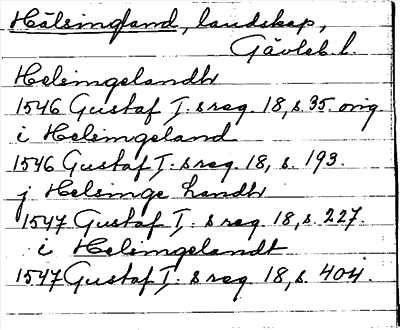 Hälsingland, landskap,
Gävleb. l.
Helsingelandh
1546 Gustaf I:s reg. 18, s. 35. orig.
i Helsingeland
1546 Gustaf I:s reg. 18, s. 193.
j Helsinge landh
1547 Gustaf I:s reg. 18, s. 227.
i Helsingelandt
1547 Gustaf I:s reg. 18, s. 404.